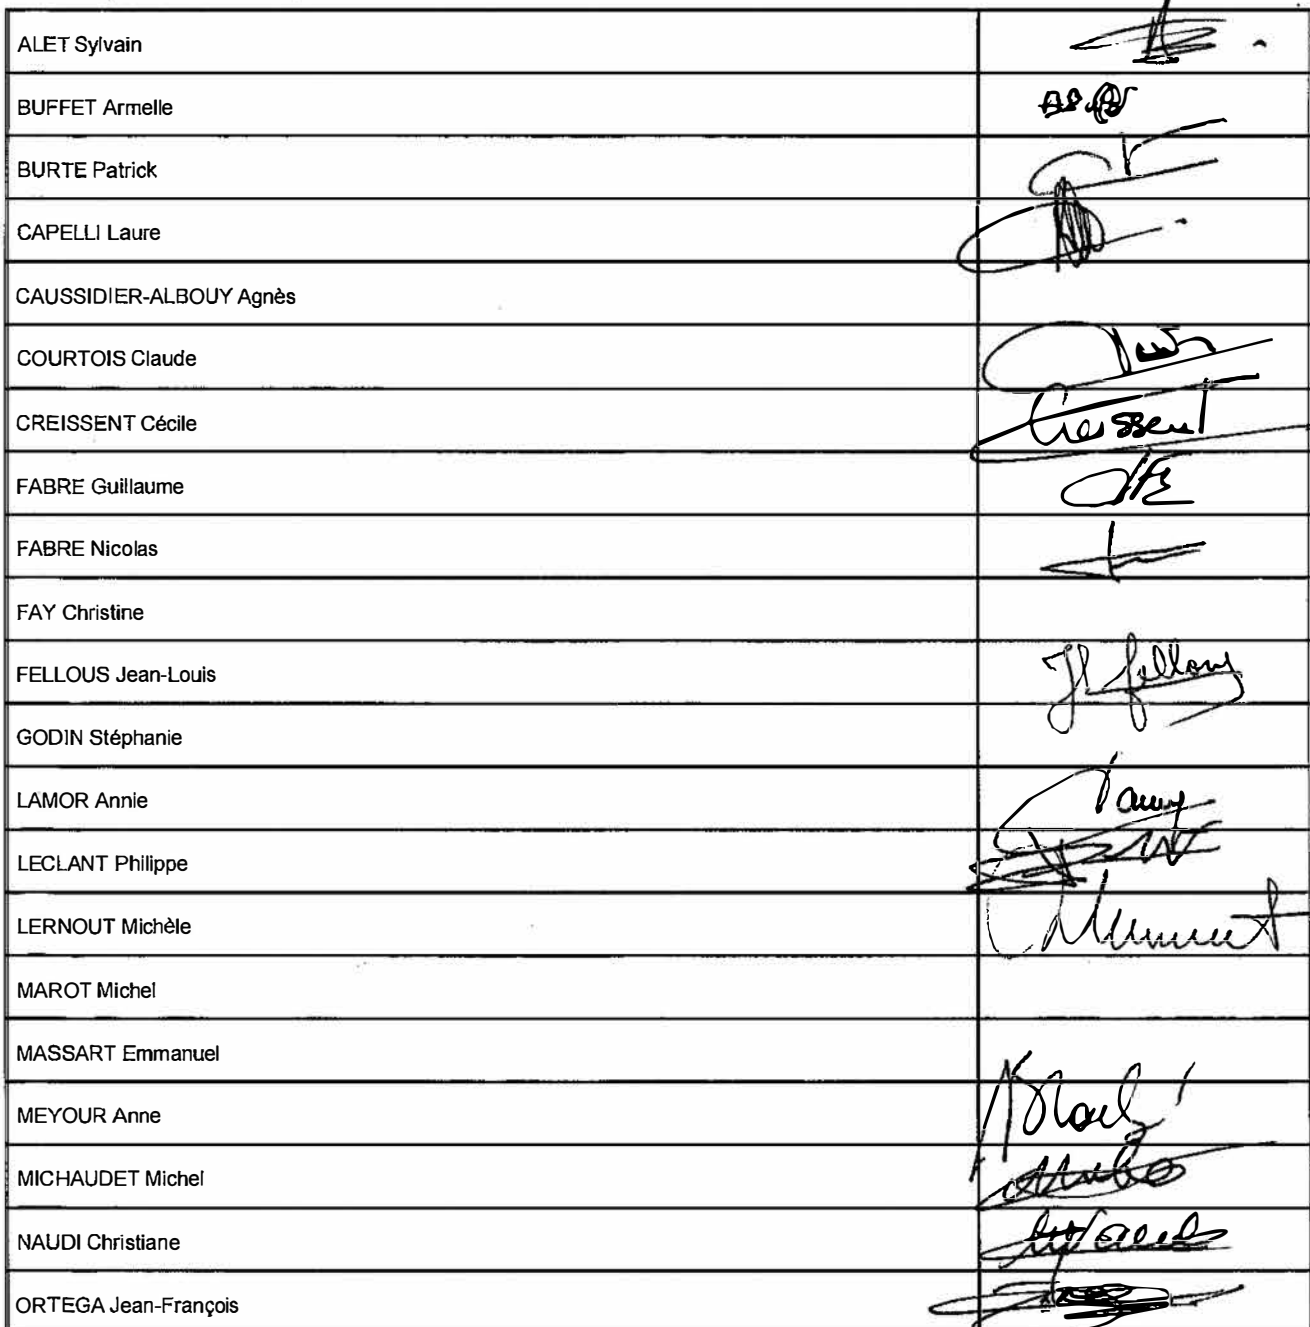 ALET Sylvain
BUFFET Armelle
BURTE Patrick
CAPELLI Laure
CAUSSIDIER-ALBOUY Agnès
COURTOIS Claude
CREISSENT Cécile
Creissent
FABRE Guillaume
FABRE Nicolas
FAY Christine
FELLOUS Jean-Louis
JL fellous
GODIN Stéphanie
LAMOR Annie
LECLANT Philippe
LERNOUT Michèle
MAROT Michel
MASSART Emmanuel
MEYOUR Anne
MICHAUDET Michel
NAUDI Christiane
ORTEGA Jean-François